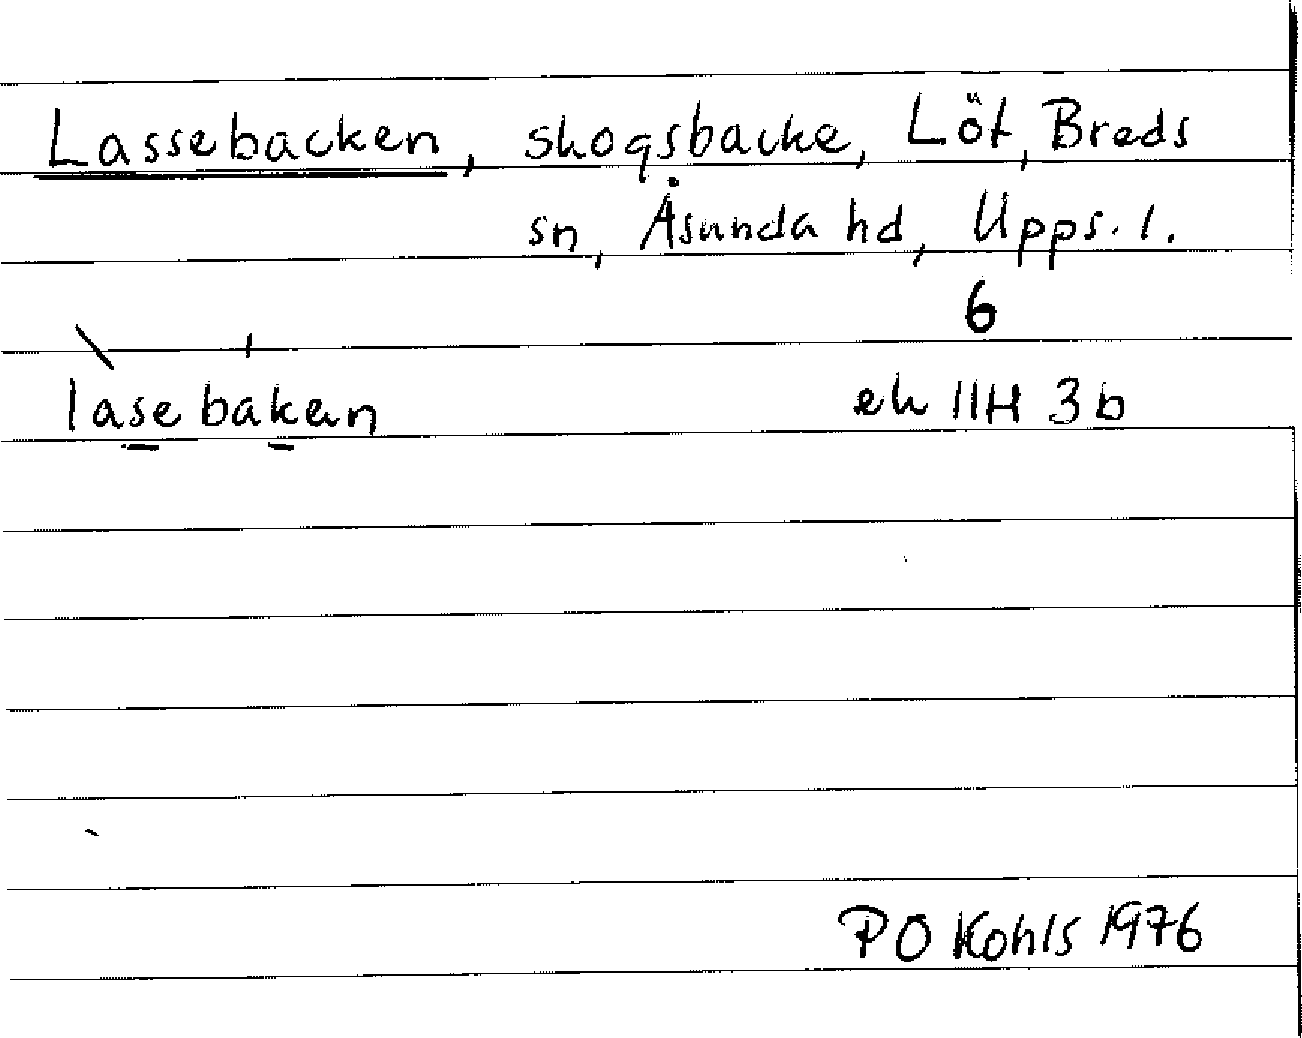 Lassebacken, skogsbacke, Löt, Breds
sn, Åsunda hd, Upps. l.
6
lasebakan
ek 11H 3b
PO Kohls 1976